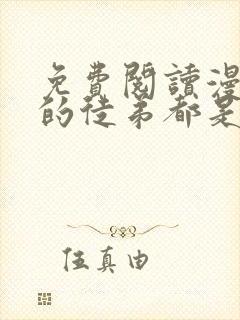 免費閱讀漫
的徒弟都是
伍真由